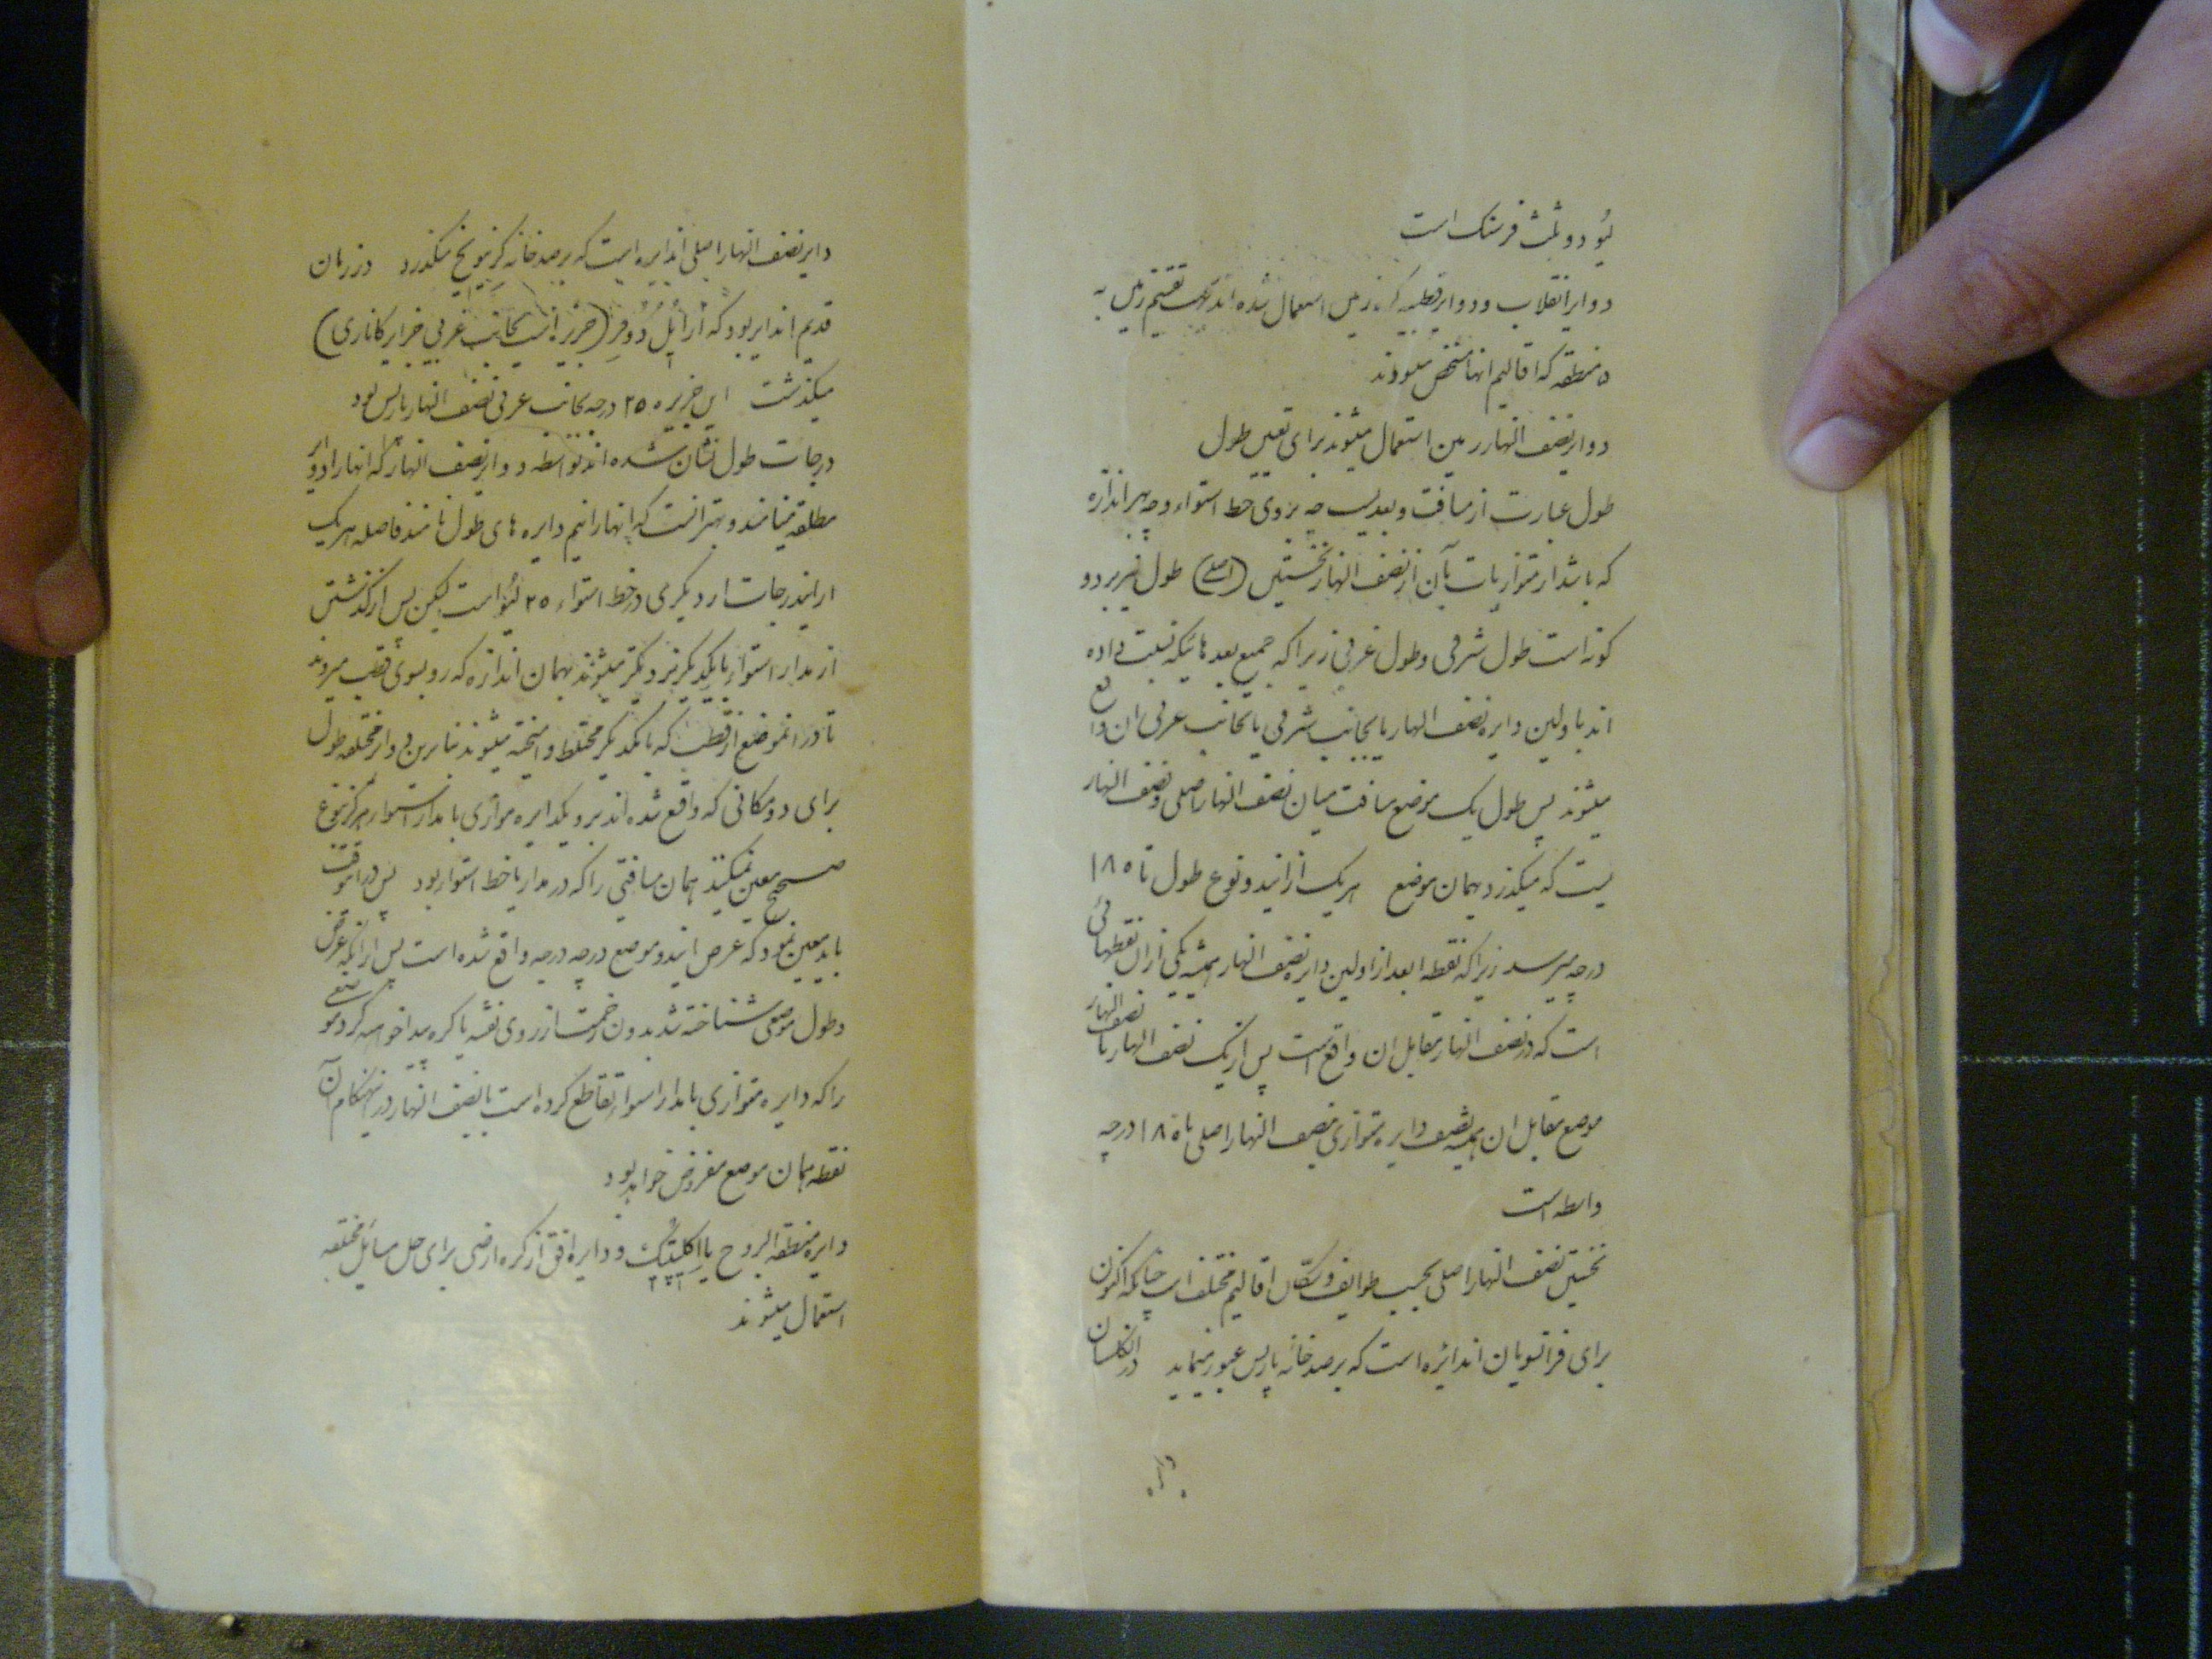 لیُو دو ثلث فرسنک است
دوایر انقلاب و دوایر قطبیه که در زمین استعمال شده اند بجهت تقسیم زمین به
۵ منطقه که اقالیم انها مشخص میشوند
دوایر نصف النهار در زمین استعمال میشوند برای تعیین طول
طول عبارت از مسافت و بعدیست چه بروی خط استواء و چه بهر اندازه
که باشد از متوازیات بآن از نصف النهار نخستین (اصلی) طول نیز بر دو
کونه است طول شرقی و طول غربی زیرا که جمیع بعدهائیکه نسبت داده
اند باولین دایره نصف النهار یا بجانب شرقی یا بجانب غربی ان واقع
میشوند پس طول یک موضع مسافت میان نصف النهار اصلی و نصف النهار
یست که میکذرد بهمان موضع هر یک از ایندو نوع طول تا ۱۸۰
درجه میرسد زیرا که نقطه ابعد از اولین دایره نصف النهار همیشه یکی از ان نقطهائی
است که در نصف النهار مقابل ان واقع است پس از یک نصف النهار تا نصف النهار
موضع مقابل ان همیشه نصف دایره متوازی نصف النهار اصلی با ۱۸۰ درجه
واسطه است
نخستین نصف النهار اصلی بحسب طوایف و سکان اقالیم مختلف است چنانکه اکنون
برای فرانسویان اندایره است که برصد خانه پاریس عبور مینماید در انکلستان
دایره نصف النهار اصلی اندایره است که برصد خانه کرینویچ میکذرد در زمان
قدیم اندایره بود که از ایُل دُوفِر (جزیره ایست بجانب غربی جزایر کاناری)
میکذشت این جزیره ۲۰ درجه بجانب غربی نصف النهار پاریس بود
درجات طول نشان شده اند بواسطه دوایر نصف النهار که انها را دوایر
مطلقه مینامند و بهتر انست که انها را نیم دایره های طول نامند فاصله هر یک
از ایندرجات از دیکری در خط استواء ۲۵ لیُو است لیکن پس از کذشتن
از مدار استواء بایکدیکر نزدیکتر میشوند بهمان اندازه که رو بسوی قطب میروند
تا در انموضع از قطب که بایکدیکر مختلط و امیخته میشوند بنابرین دوایر مختلفه طول
برای دو مکانی که واقع شده اند بر یکدایره موازی با مدار استواء هرکز بنوع
صحیح معین نمیکنند همان مسافتی را که در مدار یا خط استواء بود پس در انوقت
باید معین نمود که عرض ایندو موضع در چه درجه واقع شده است پس از انکه عرض
و طول موضعی شناخته شد بدون زحمت از روی نقشه یا کره پیدا خواهد کرد موضعی
را که دایره متوازی با مدار استواء تقاطع کرده است با نصف النهار در اینهنکام آن
نقطه همان موضع مفروض خواهد بود
دایره منطقه البروج یا اِکلیپتیک و دایره افق از کره ارضی برای حل مسایل مختلفه
استعمال میشوند